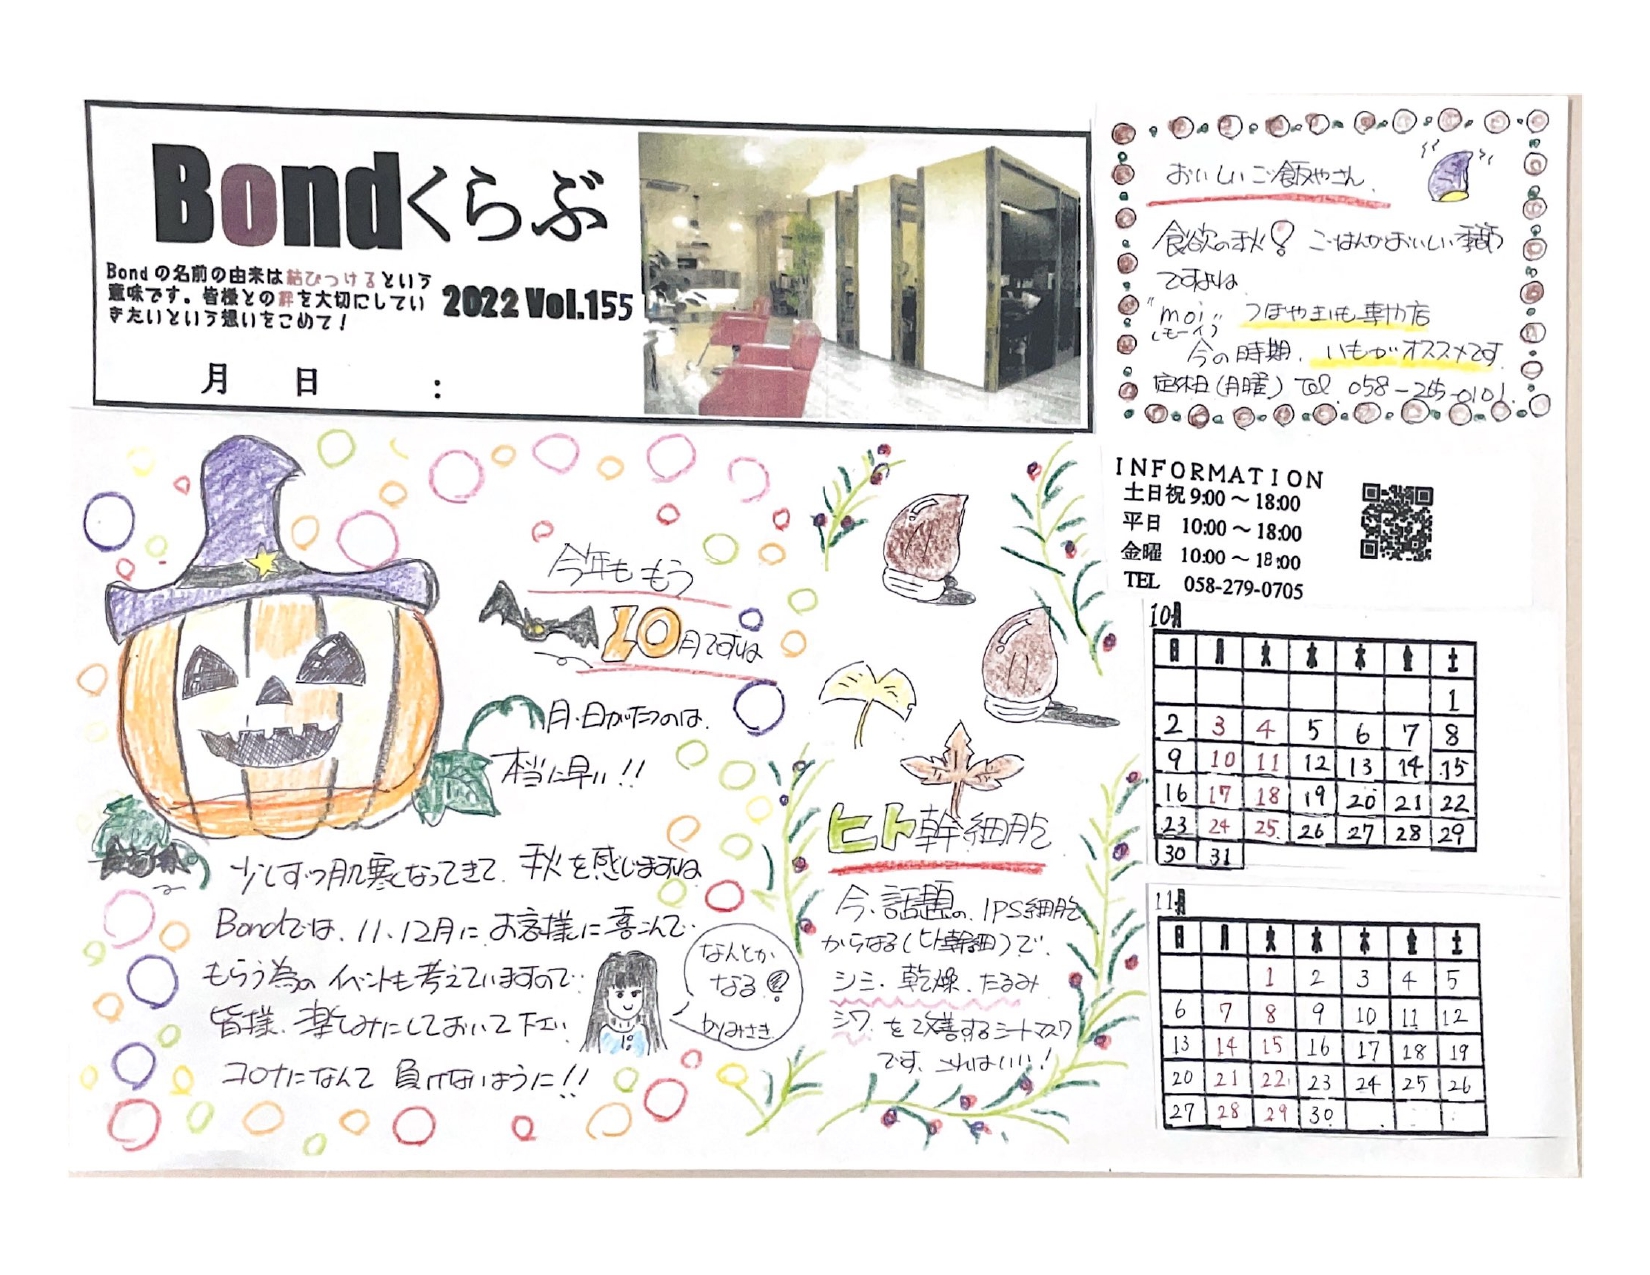 Bondくらぶ
Bondの名前の由来は結びつけるという
意味です。皆様との絆を大切にしてい
きたいという想いをこめて！
2022 Vol.155
月 日 :
おいしいご飯やさん
食欲の秋! ごはんがおいしい季節
ですよね
"moi" つぼやきいも専門店
(モーイ)
今の時期、いもがオススメです
定休日(月曜) Tel
INFORMATION
土日祝 9:00～18:00
平日 10:00～18:00
金曜 10:00～18:00
TEL 058-279-0705
今年ももう
10月ですね
月・日がたつのは、
本当に早い!!
少しずつ肌寒くなってきて、秋を感じますね
Bondでは、11、12月にお客様に喜こんで
もらう為のイベントも考えていますので
皆様、楽しみにしておいて下さい
コロナになんて負けないように!!
なんとか
なる!?
byみさき
ヒト幹細胞
今、話題の、IPS細胞
からなる(ヒト幹細胞)で、
シミ、乾燥、たるみ
シワ、を改善するシートマスク
です、これはいい!
10月
日 月 火 水 木 金 土
1
2 3 4 5 6 7 8
9 10 11 12 13 14 15
16 17 18 19 20 21 22
23 24 25 26 27 28 29
30 31
11月
日 月 火 水 木 金 土
1 2 3 4 5
6 7 8 9 10 11 12
13 14 15 16 17 18 19
20 21 22 23 24 25 26
27 28 29 30